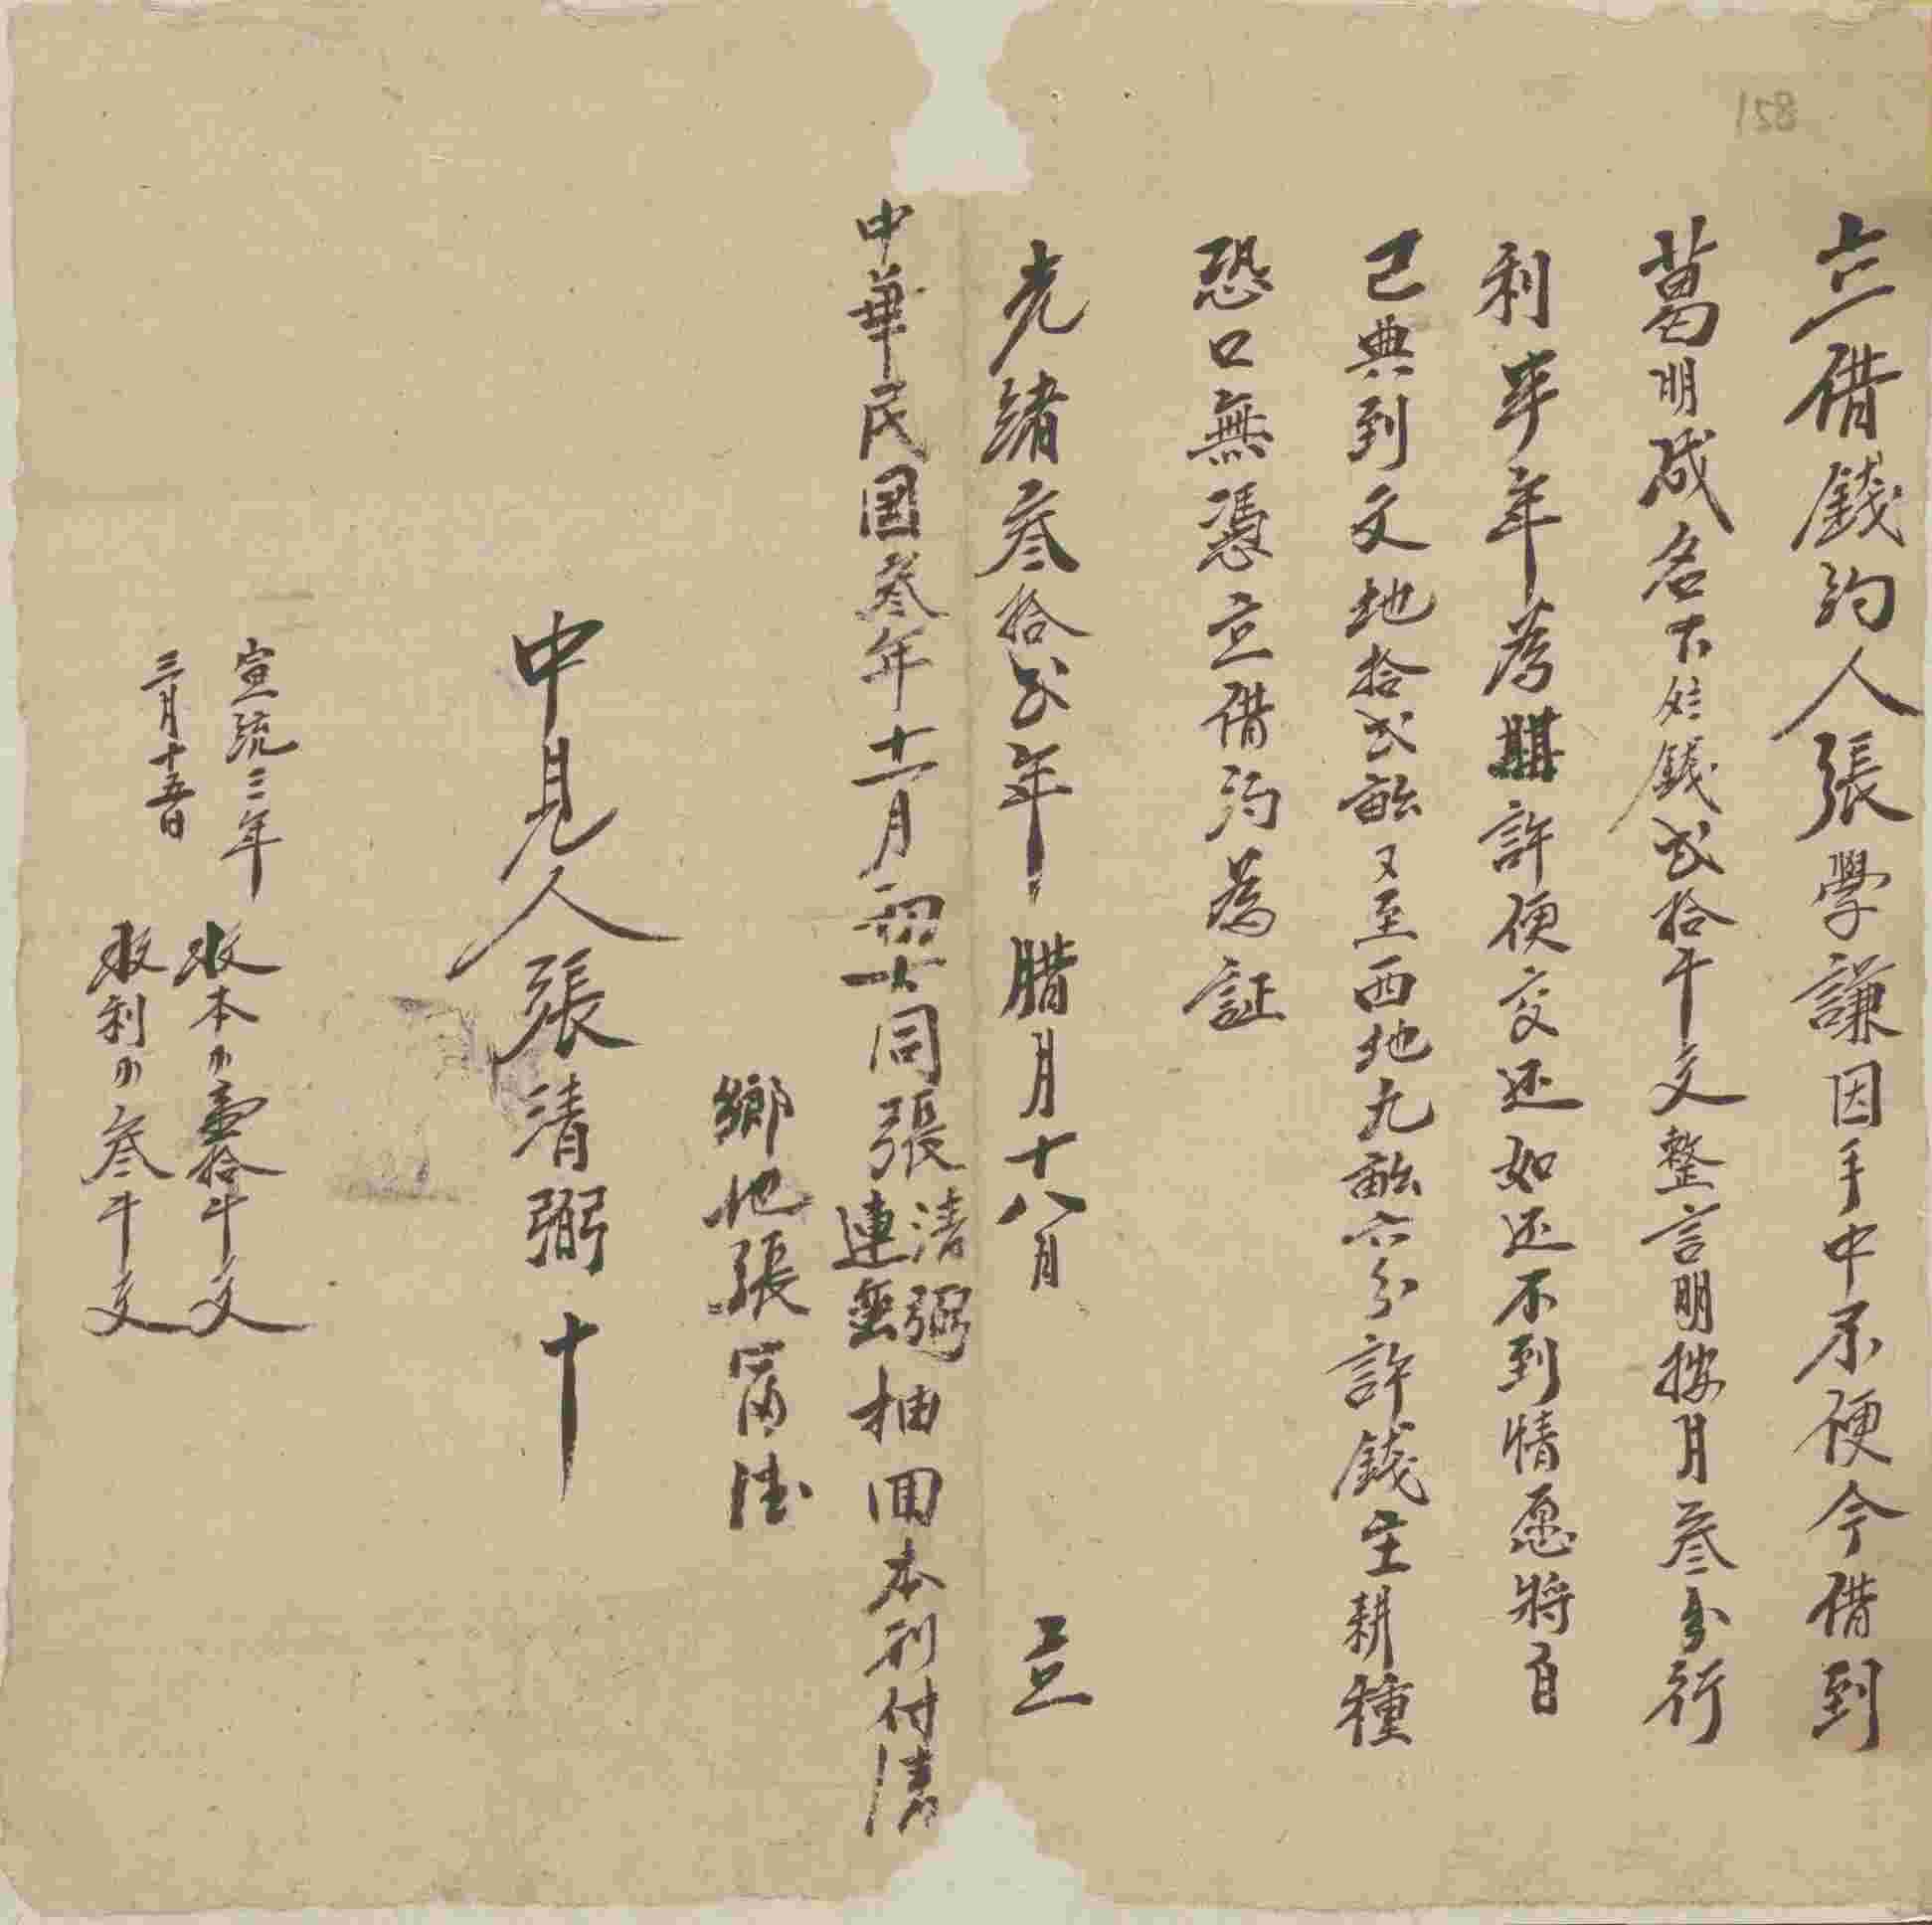 立借錢約人張學謙因手中不便今借到
葛明成名下錢弍拾千文整言明按月叁分行
利半年為期許便交还如还不到情愿將自
己典到文地拾弍畝又至西地九畝六分許錢主耕種
恐口無憑立借約為証
光緒叁拾弍年腊月十八日 立
中華民國叁年十一月初七同張清弼連璽抽回本利付清
鄉地張富德
中見人張清弼 十
宣統三年
三月十五日
收本錢壹拾千文
收利錢叁千文